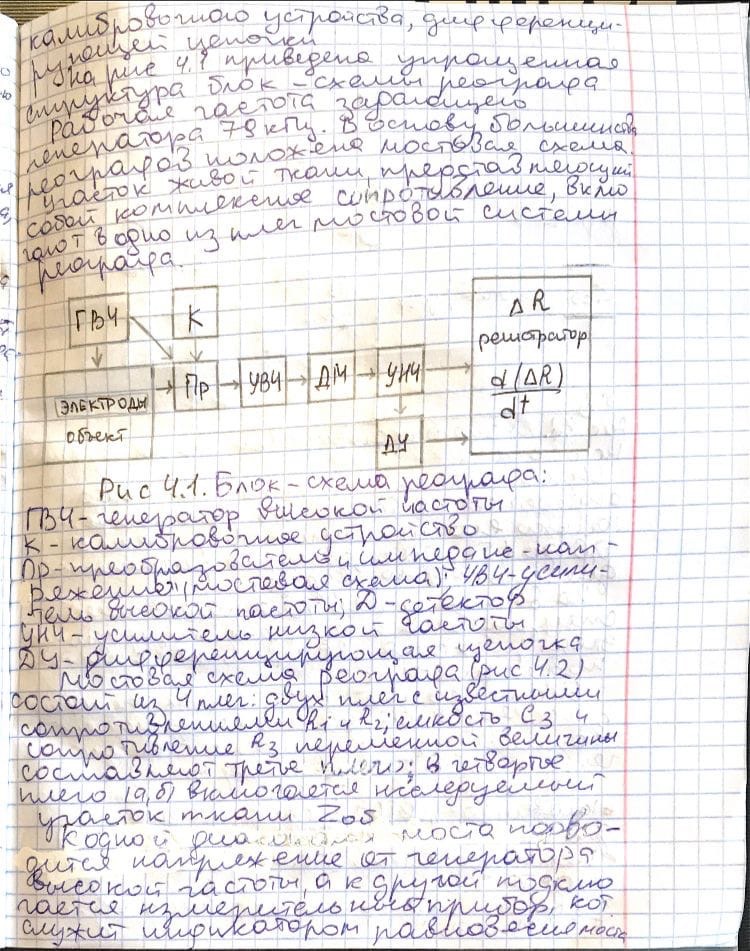 калибровочного устройства, дифференци-
рующей цепочки
На рис 4.1 приведена упрощенная
структура блок-схемы реографа
Рабочая частота задающего
генератора 78 кГц. В основу большинств
реографов положена мостовая схема.
участок живой ткани, представляющий
собой комплексное сопротивление, вклю
чают в одно из плеч мостовой системы
реографа.
ГВЧ
К
ΔR
регистратор
d(ΔR)
dt
электроды
объект
Пр
УВЧ
ДМ
УНЧ
ДУ
Рис 4.1. Блок-схема реографа:
ГВЧ-генератор высокой частоты
К - калибровочное устройство
Пр-преобразователь импеданс-нап-
ряжение (мостевая схема); УВЧ-усили-
тель высокой частоты; Д-детектор
УНЧ-усилитель низкой частоты
ДУ-дифференцирующая цепочка
Мостовая схема реографа (рис 4.2)
состоит из 4 плеч: двух плеч с известными
сопротивлениями R1 и R2; емкость C3 и
сопротивление R3 переменной величины
составляют третье плечо; в четвертое
плечо (а,б) включается исследуемый
участок ткани Zоб
К одной моста подво-
дится напряжение от генератора
высокой частоты, а к другой подклю
чается измерительный прибор, кот
служит индикатором равновесия моста